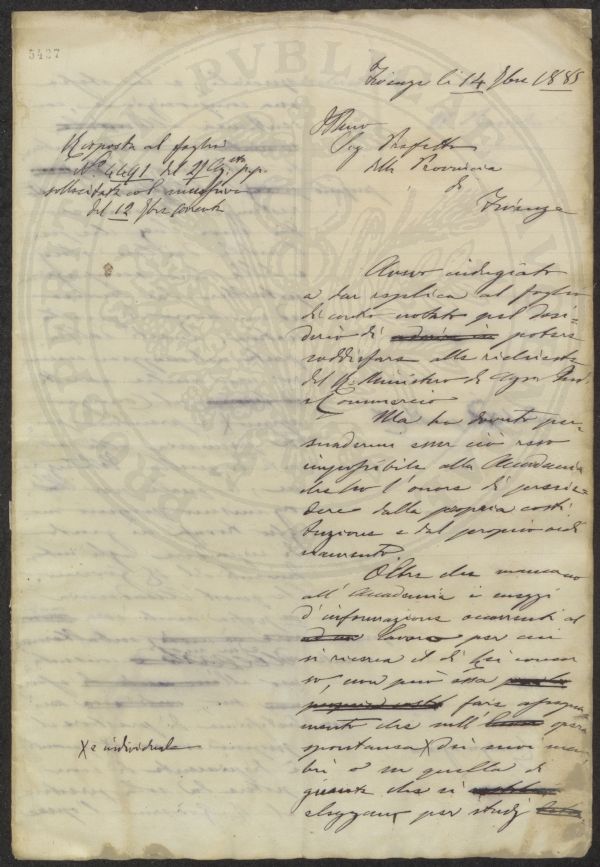 5427
Firenze li 14 Xbre 1885
Risposta al foglio
N.º 4491 del 21 p.p.
sollecitata col
del 12 Xbre corrente
Sig Prefetto
della Provincia
di
Firenze
Avevo indugiato
a dar replica al foglio
di contro notato pel desi-
derio di potere
soddisfare alle richieste
del R. Ministero di Agr. Ind.
e Commercio
Ma ho dovuto per-
suadermi esser ciò reso
impossibile alla Accademia
che ho l'onore di presie-
dere dalla propria costi-
tuzione e dal proprio ordi
namento.
Oltre che mancano
all'Accademia i mezzi
d'informazione occorrenti al
lavoro per cui
si ricerca il di Lei concor
so, non può essa
fare assegna
mento che sull' opera
spontanea X dei suoi mem
bri o su quella di
che si
per studj
X e individuale